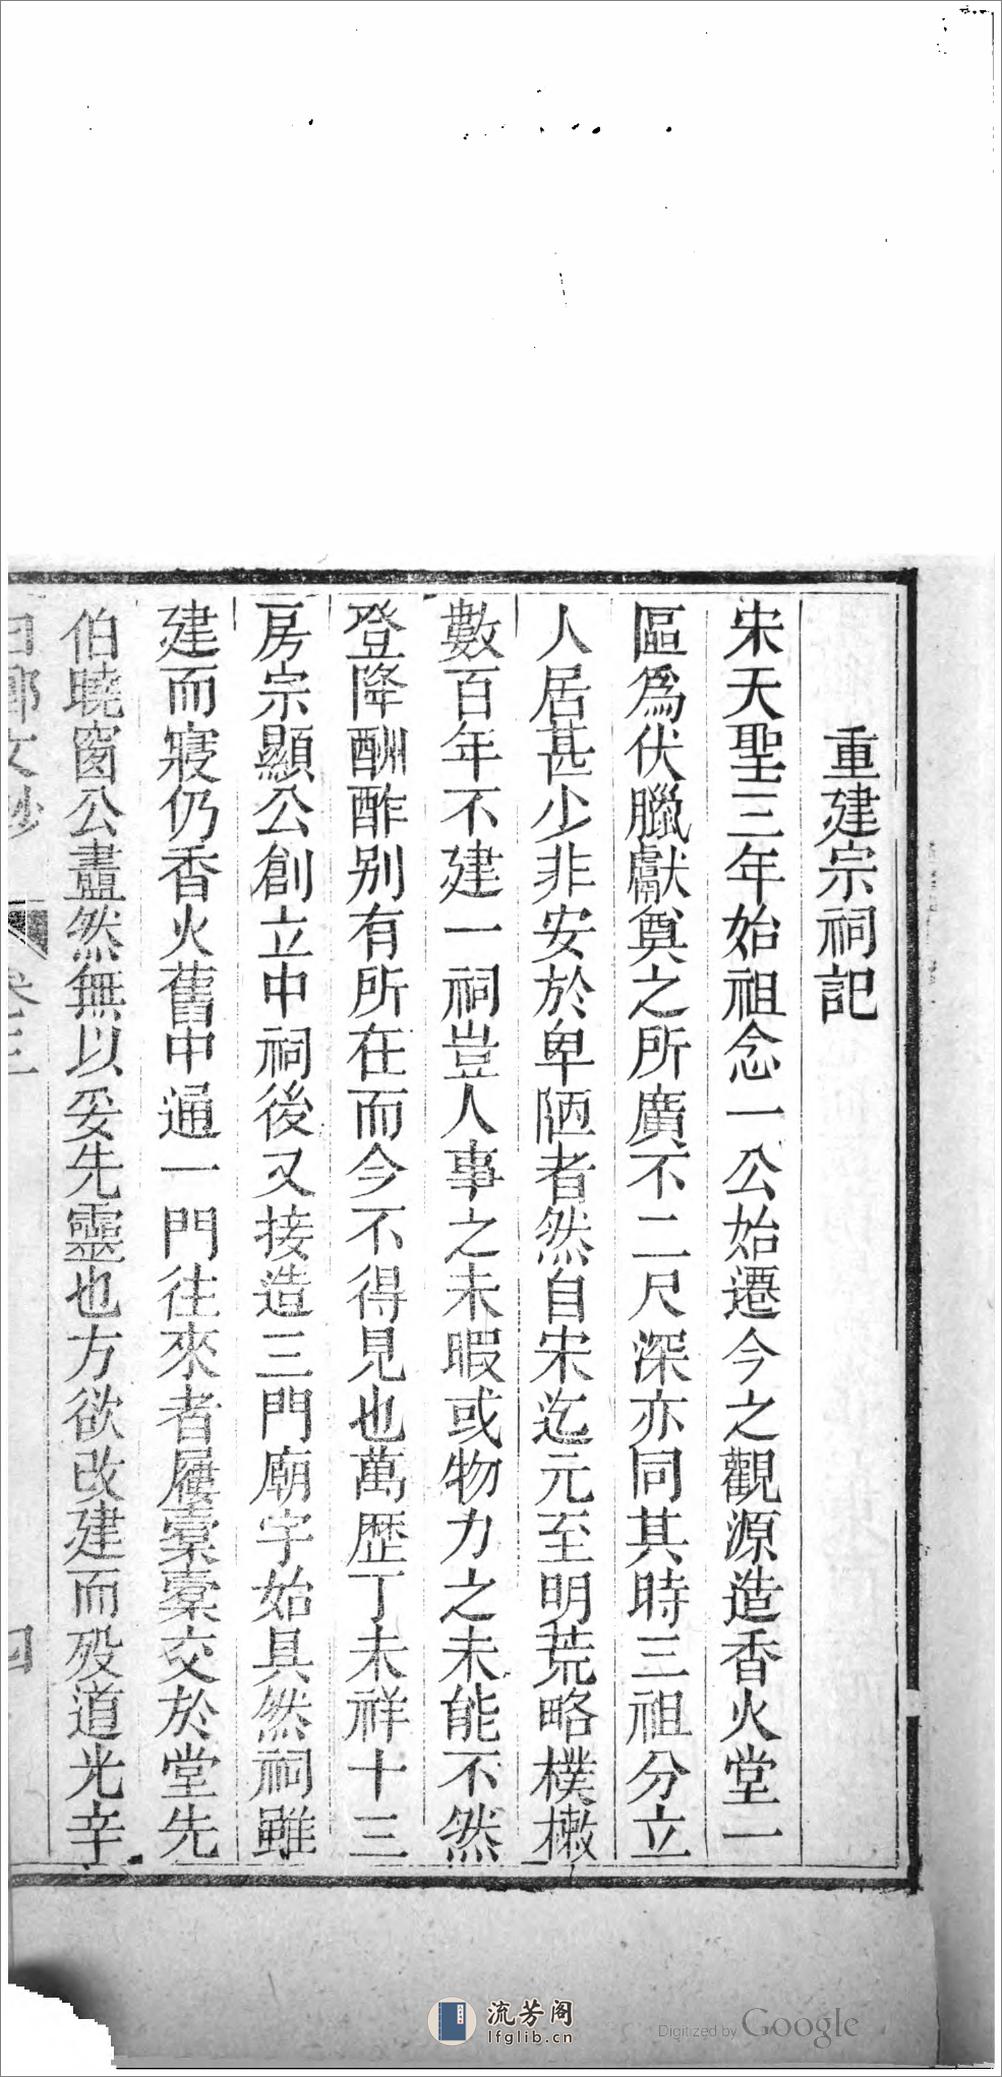 重建宗祠記
宋天聖三年始祖念一公始遷今之觀源造香火堂一
區爲伏臘獻奠之所廣不二尺深亦同其時三祖分立
人居甚少非安於卑陋者然自宋迄元至明荒略樸橄
數百年不建一祠豈人事之未暇或物力之未能不然
登降酬酢别有所在而今不得見也萬歴丁未祥十三
房宗顯公創立中祠後又接造三門廟宇始具然祠雖
建而寢仍香火舊中通一門往來者屨橐橐交於堂先
伯曉窗公衋然無以妥先靈也方欲改建而殁道光辛
文鈔
卷三
四
流芳阁
lfglib.cn
Digitized by Google